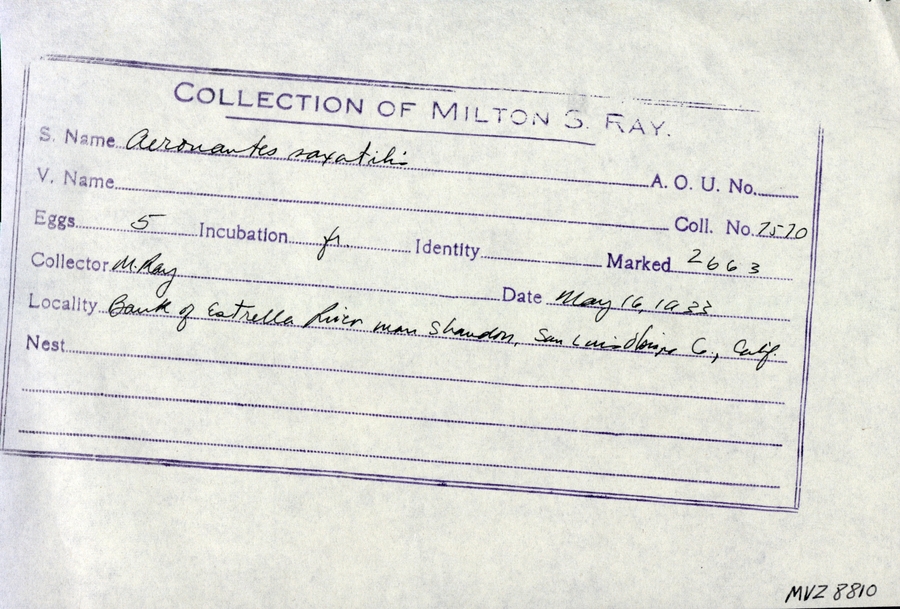 COLLECTION OF MILTON S. RAY.
S. Name Aeronautes saxatilis A. O. U. No.
V. Name Coll. No. 7570
Eggs 5 Incubation fr. Identity Marked 2663
Collector M. Ray Date May 16, 1933
Locality Bank of Estrella River near Shandon, San Luis Obispo Co., Calif.
Nest
MVZ 8810